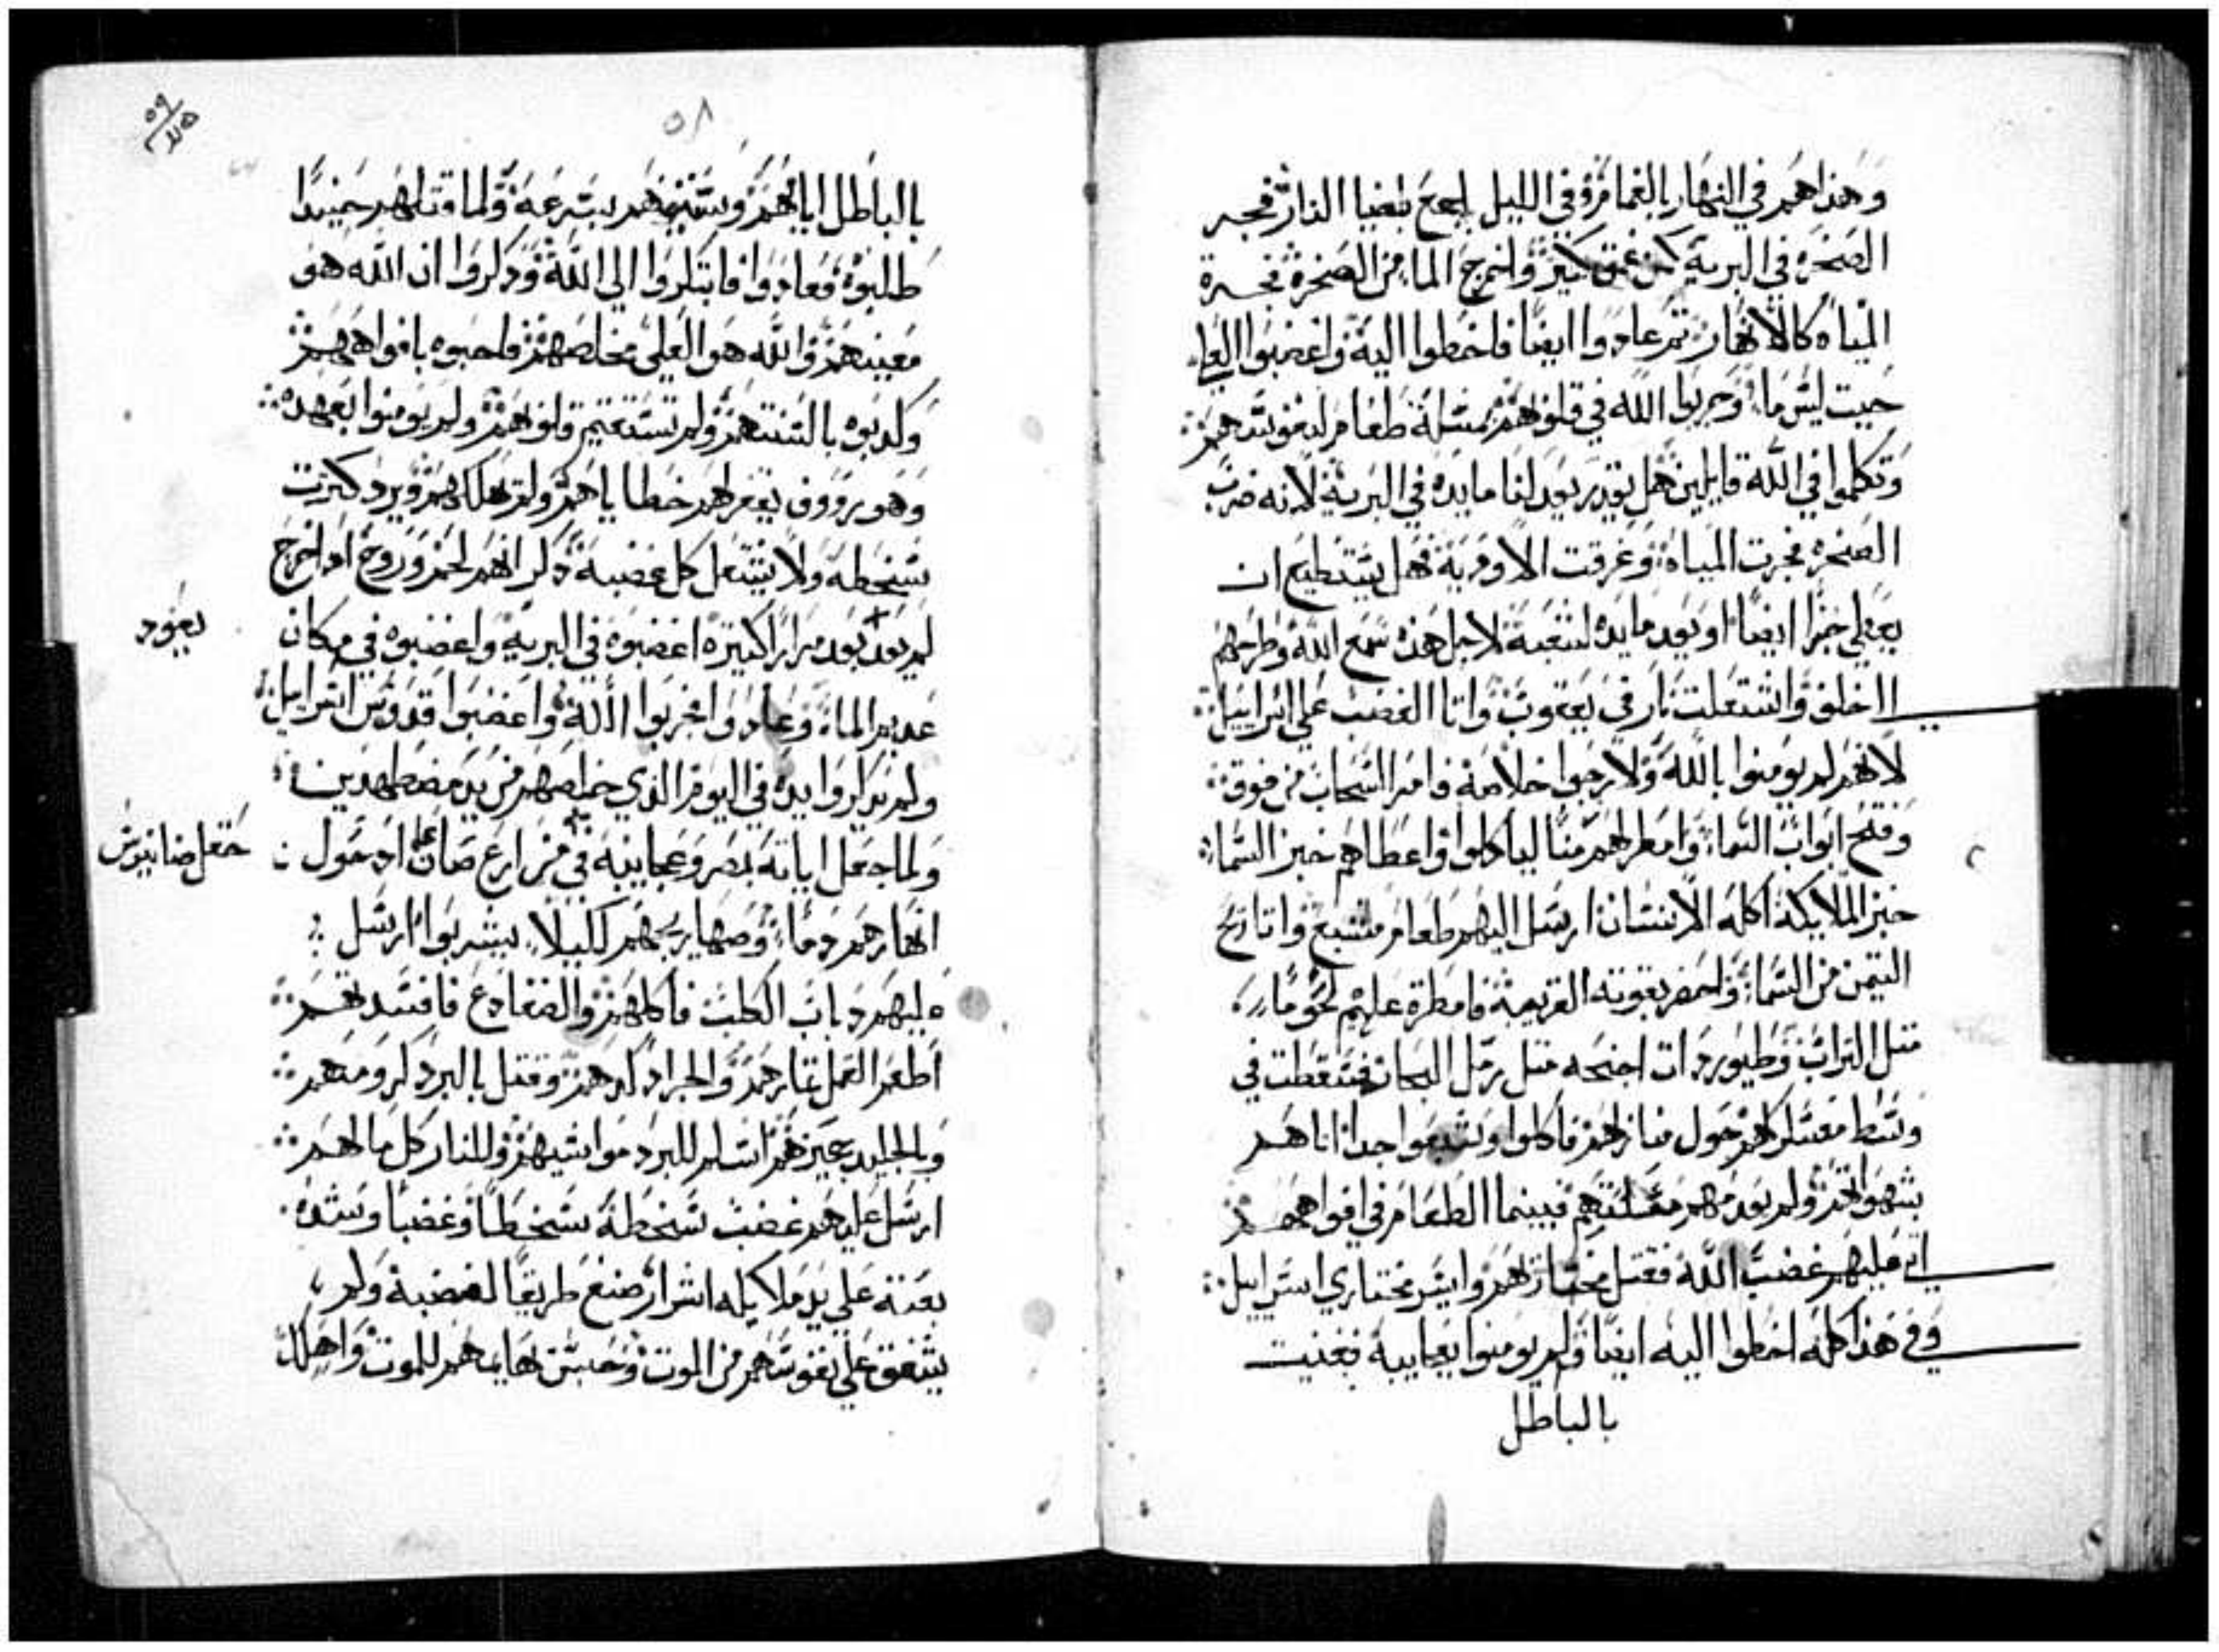 وهداهم في النهار بالغمام وفي الليل اجمع بضيا النار فجر
الصخره في البرية كمن غمق كبير واخرج الما من الصخرة فجرة
المياه كالانهار ثم عادوا ايضا فاخطوا اليه واغضبوا العلي
حيت ليس ما وجربوا الله في قلوبهم بمسلة طعام لنفوسهم
وتكلموا في الله قايلين هل يقدر يعد لنا مايده في البرية لانه ضرب
الصخره فجرت المياه وغرقت الاودية فهل يستطيع ان
يعطي خبزا ايضا او يعد مايده لشعبة لاجل هذه سمع الله وطرحهم
الاخلف واشتعلت نار في يعقوب واتا الغضب علي اسراييل
لانهم لم يومنوا بالله ولا رجوا خلاصه فامر السحاب من فوق
وفتح ابواب السما وامطر لهم منا لياكلوا واعطاهم خبز السما
خبز الملايكة اكله الانسان ارسل اليهم طعام مشبع واتا ريح
التيمن من السما واحضر بقوته العربية فامطرة عليهم لحوما
متل التراب وطيور دات اجنحه متل رمل البحار فتسقطت في
وسط معسكرهم حول منازلهم فاكلوا وشبعوا جدا اتاهم
بشهواتهم ولم يعدمهم مسلتهم فبينما الطعام في افواههم
اتي عليهم غضب الله فقتل مختارهم وايسر مختاري اسراييل
وفي هذا كله اخطوا اليه ايضا ولم يومنوا بعجايبه ففنيت
بالباطل
٥٨
بالباطل ايامهم وسنينهم بسرعة ولما قتلهم حينيدا
طلبوه وعادوا فابتكروا الي الله ودكروا ان الله هو
معينهم والله هو العلي مخلصهم فاحبوه بافواههم
وكدبوه بالسنتهم ولم تستقيم قلوبهم ولم يومنوا بعهده
وهو رووف يغفر لهم خطاياهم ولم يهلكهم ويرد كترت
سخطه ولا يشتعل كل غضبه دكر انهم لحم وروح اد اخرج
لم يعد يعد مرارا كتيرة اغضبوه في البرية واغضبوه في مكان
يعود
عديم الما وعادوا فجربوا الله واغضبوا قدوس اسراييل
ولم يدكروا يده في اليوم الذي خلصهم من يد مضطهدين
ولما جعل اياته بمصر وعجايبه في مزارع صاعان اد حول
حقل ضانيوس
انهارهم دما وصهاريجهم لكيلا يشربوا ارسل
عليهم دباب الكلب فاكلهم والضفادع فافسدتهم
اطعم القمل تمارهم والجراد كدهم وقتل بالبرد كرومهم
وبالجليد جميزهم اسلم للبرد مواشيهم وللنار كل مالهم
ارسل عليهم غضب سخطه سخطا وغضبا وشده
بعته علي يد ملايكه اشرار صنع طريقا لغضبه ولم
يشفق علي نفوسهم من الموت وحبس بهايمهم للموت واهلك